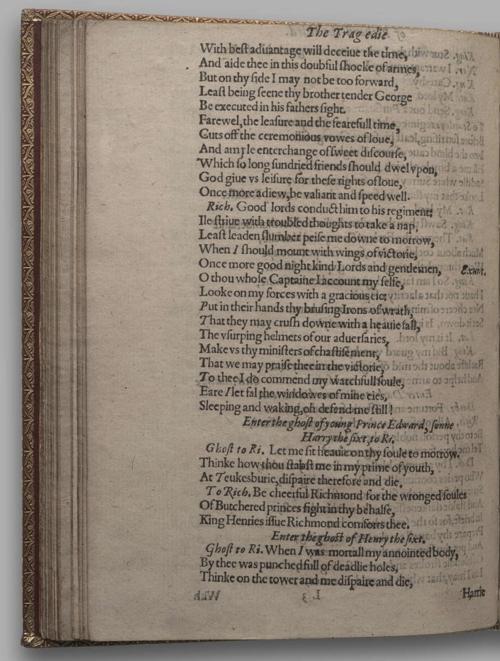 The Tragedie
With best aduantage will deceiue the time,
And aide thee in this doubful shocke of armes,
But on thy side I may not be too forward,
Least being seene thy brother tender George
Be executed in his fathers sight.
Farewel, the leasure and the fearefull time,
Cuts off the ceremonious vowes of loue,
And ample enterchange of sweet discourse,
Which so long sundried friends should dwel vpon,
God giue vs leisure for these rights of loue,
Once more adiew, be valiant and speed well.
Rich. Good lords conduct him to his regiment:
Ile striue with troubled thoughts to take a nap,
Least leaden slumber peise me downe to morrow,
When I should mount with wings of victorie,
Once more good night kind Lords and gentlemen, Exunt.
O thou whose Captaine I account my selfe,
Looke on my forces with a gracious eie:
Put in their hands thy brusing Irons of wrath,
That they may crush downe with a heauie fall,
The vsurping helmets of our aduersaries,
Make vs thy ministers of chastisement,
That we may praise thee in the victorie,
To thee I do commend my watchfull soule,
Eare I let fal the windowes of mine eies,
Sleeping and waking, oh defend me still!
Enter the ghost of young Prince Edward, sonne
Harry the sixt, to Ri.
Ghost to Ri. Let me sit heauie on thy soule to morrow.
Thinke how thou stabst me in my prime of youth,
At Teukesburie, dispaire therefore and die.
To Rich. Be cheerful Richmond for the wronged soules
Of Butchered princes fight in thy behalfe,
King Henries issue Richmond comforts thee.
Enter the ghost of Henry the sixt.
Ghost to Ri. When I was mortall my annointed body,
By thee was punched full of deadlie holes,
Thinke on the tower and me dispaire and die,
Harrie